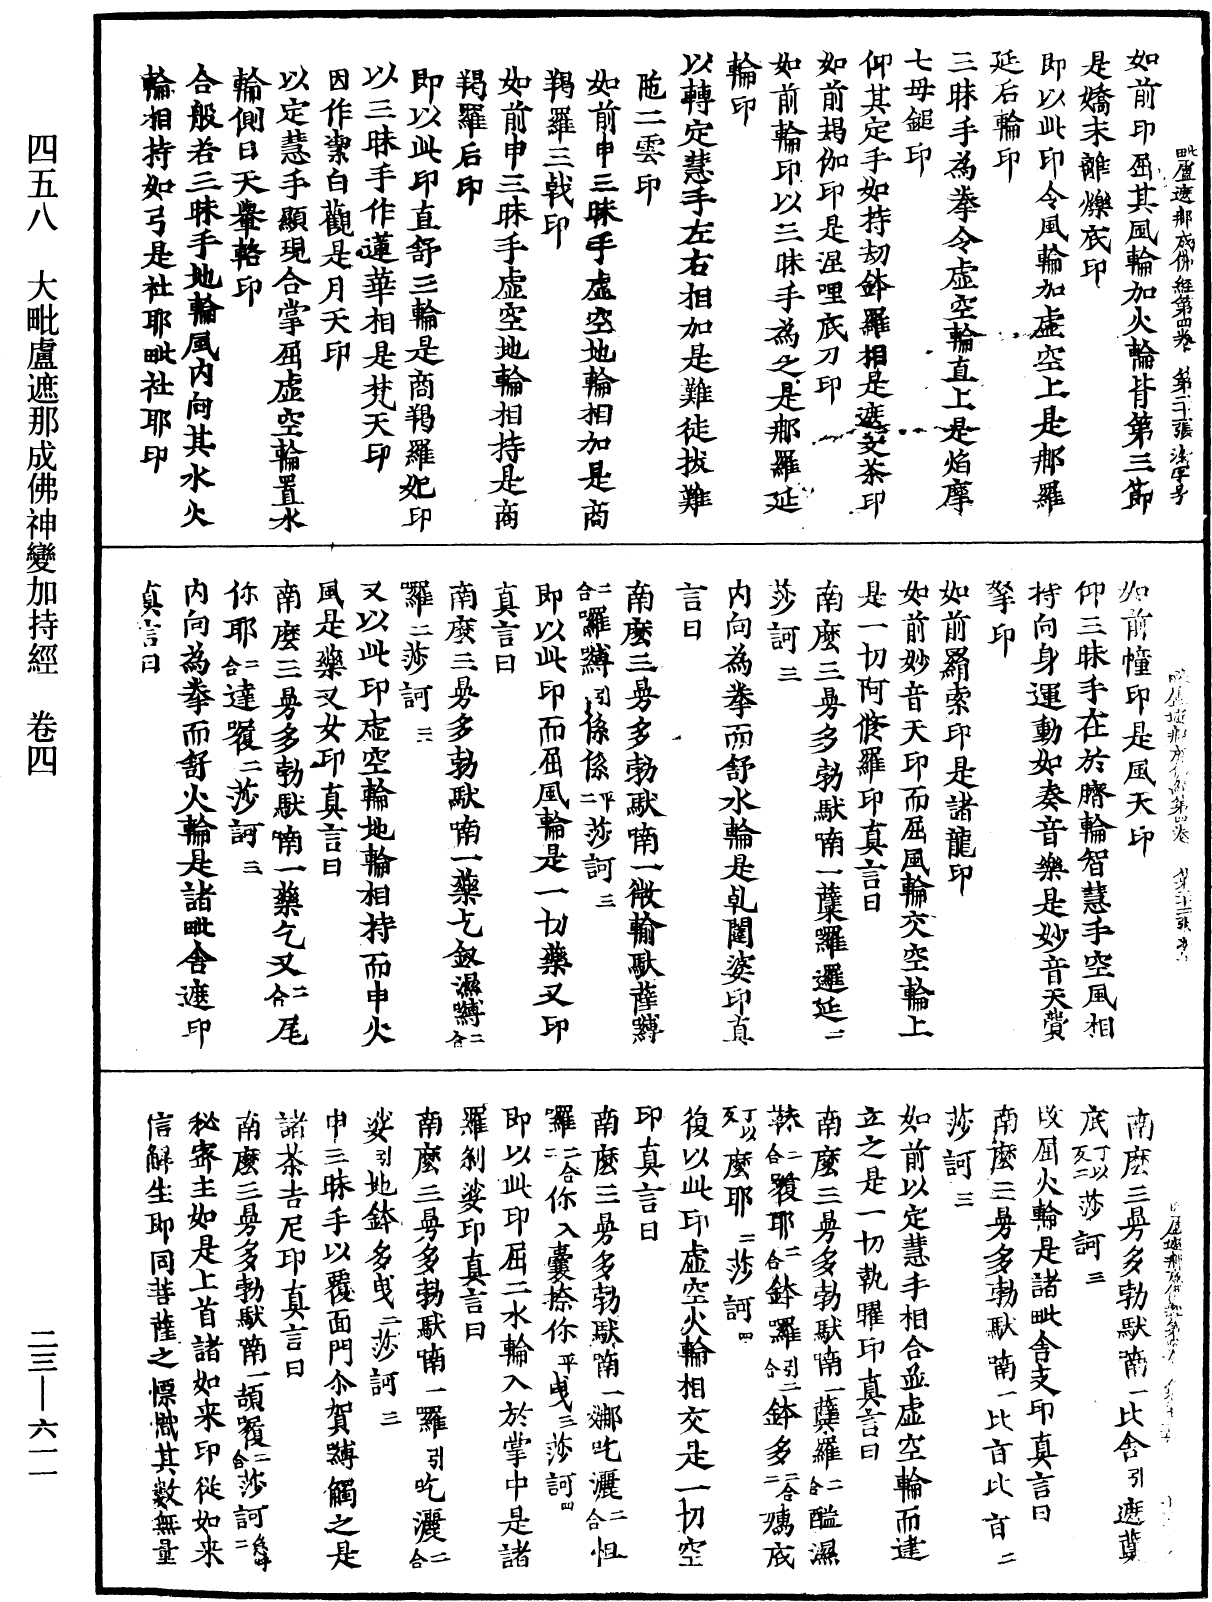 四五八　大毗盧遮那成佛神變加持經　卷四
二三—六一一
毗盧遮那成佛經第四卷　第二十張　染字号
如前印屈其風輪加火輪背第三節
是嬌末離爍底印
即以此印令風輪加虛空上是那羅
延后輪印
三昧手為拳令虛空輪直上是焰摩
七母鎚印
仰其定手如持劫鉢羅相是遮文荼印
如前朅伽印是涅哩底刀印
如前輪印以三昧手為之是那羅延
輪印
以轉定慧手左右相加是難徒拔難
陁二雲印
如前申三昧手虛空地輪相加是商
羯羅三戟印
如前申三昧手虛空地輪相持是商
羯羅后印
即以此印直舒三輪是商羯羅妃印
以三昧手作蓮華相是梵天印
因作潔白觀是月天印
以定慧手顯現合掌屈虛空輪置水
輪側日天轝輅印
合般若三昧手地輪風內向其水火
輪相持如弓是社耶毗社耶印
如前幢印是風天印
仰三昧手在於臍輪智慧手空風相
持向身運動如奏音樂是妙音天費
拏印
如前羂索印是諸龍印
如前妙音天印而屈風輪交空輪上
是一切阿修羅印真言曰
南麼三曼多勃馱喃一蘖羅邏延二
莎訶三
內向為拳而舒水輪是乹闥婆印真
言曰
南麼三曼多勃馱喃一微輸馱薩嚩
二合囉嚩引係係平二莎訶三
即以此印而屈風輪是一切藥叉印
真言曰
南麼三曼多勃馱喃一藥乞釵濕嚩二合
囉二莎訶三
又以此印虛空輪地輪相持而申火
風是藥叉女印真言曰
南麼三曼多勃馱喃一藥乞叉二合尾
你耶二合達囉二莎訶三
內向為拳而舒火輪是諸毗舍遮印
真言曰
南麼三曼多勃馱喃一比舍引遮蘗
底丁以反二莎訶三
改屈火輪是諸毗舍支印真言曰
南麼三曼多勃馱喃一比旨比旨二
莎訶三
如前以定慧手相合並虛空輪而建
立之是一切執曜印真言曰
南麼三曼多勃馱喃一蘗囉二合醯濕
靺二合囉耶二合鉢囉引二合鉢多二合孺底
丁以反麼耶三莎訶四
復以此印虛空火輪相交是一切宿
印真言曰
南麼三曼多勃馱喃一娜吃灑二合怛
囉二合二你入曩捺你平曳三莎訶四
即以此印屈二水輪入於掌中是諸
羅剎娑印真言曰
南麼三曼多勃馱喃一囉引吃灑二合
娑引地鉢多曳二莎訶三
申三昧手以覆面門尒賀嚩觸之是
諸荼吉尼印真言曰
南麼三曼多勃馱喃一頡囉二合莎訶二
秘密主如是上首諸如来印從如来
信解生即同菩薩之幖幟其數無量